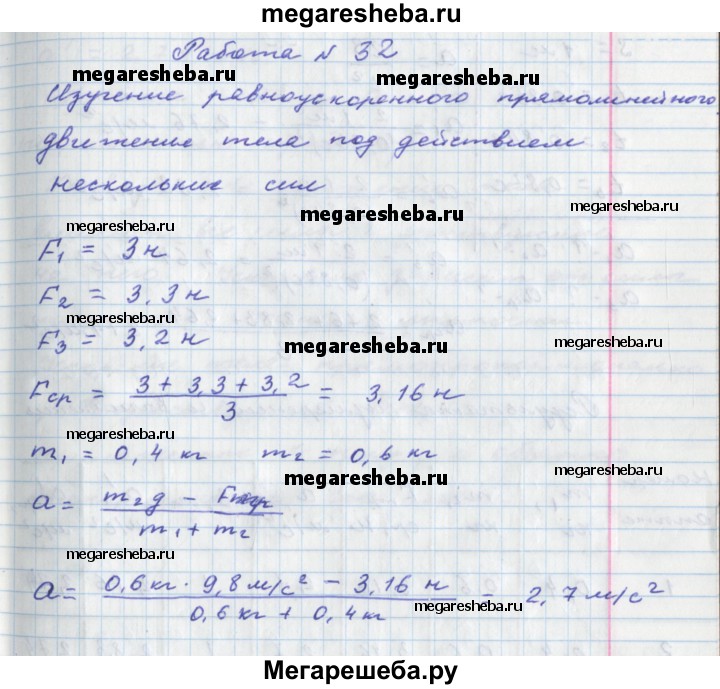 megaresheba.ru
Работа № 32
megaresheba.ru megaresheba.ru
Изучение равноускоренного прямолинейного
движение тела под действием
нескольких сил
megaresheba.ru
megaresheba.ru
F₁ = 3 н
F₂ = 3,3 н
megaresheba.ru
F₃ = 3,2 н
megaresheba.ru
Fср = (3 + 3,3 + 3,2) / 3 = 3,16 н
megaresheba.ru
m₁ = 0,4 кг m₂ = 0,6 кг
megaresheba.ru
a = (m₂g − Fтр) / (m₁ + m₂)
megaresheba.ru
a = (0,6 кг · 9,8 м/с² − 3,16 н) / (0,6 кг + 0,4 кг) = 2,7 м/с²
megaresheba.ru
Мегарешеба.ру